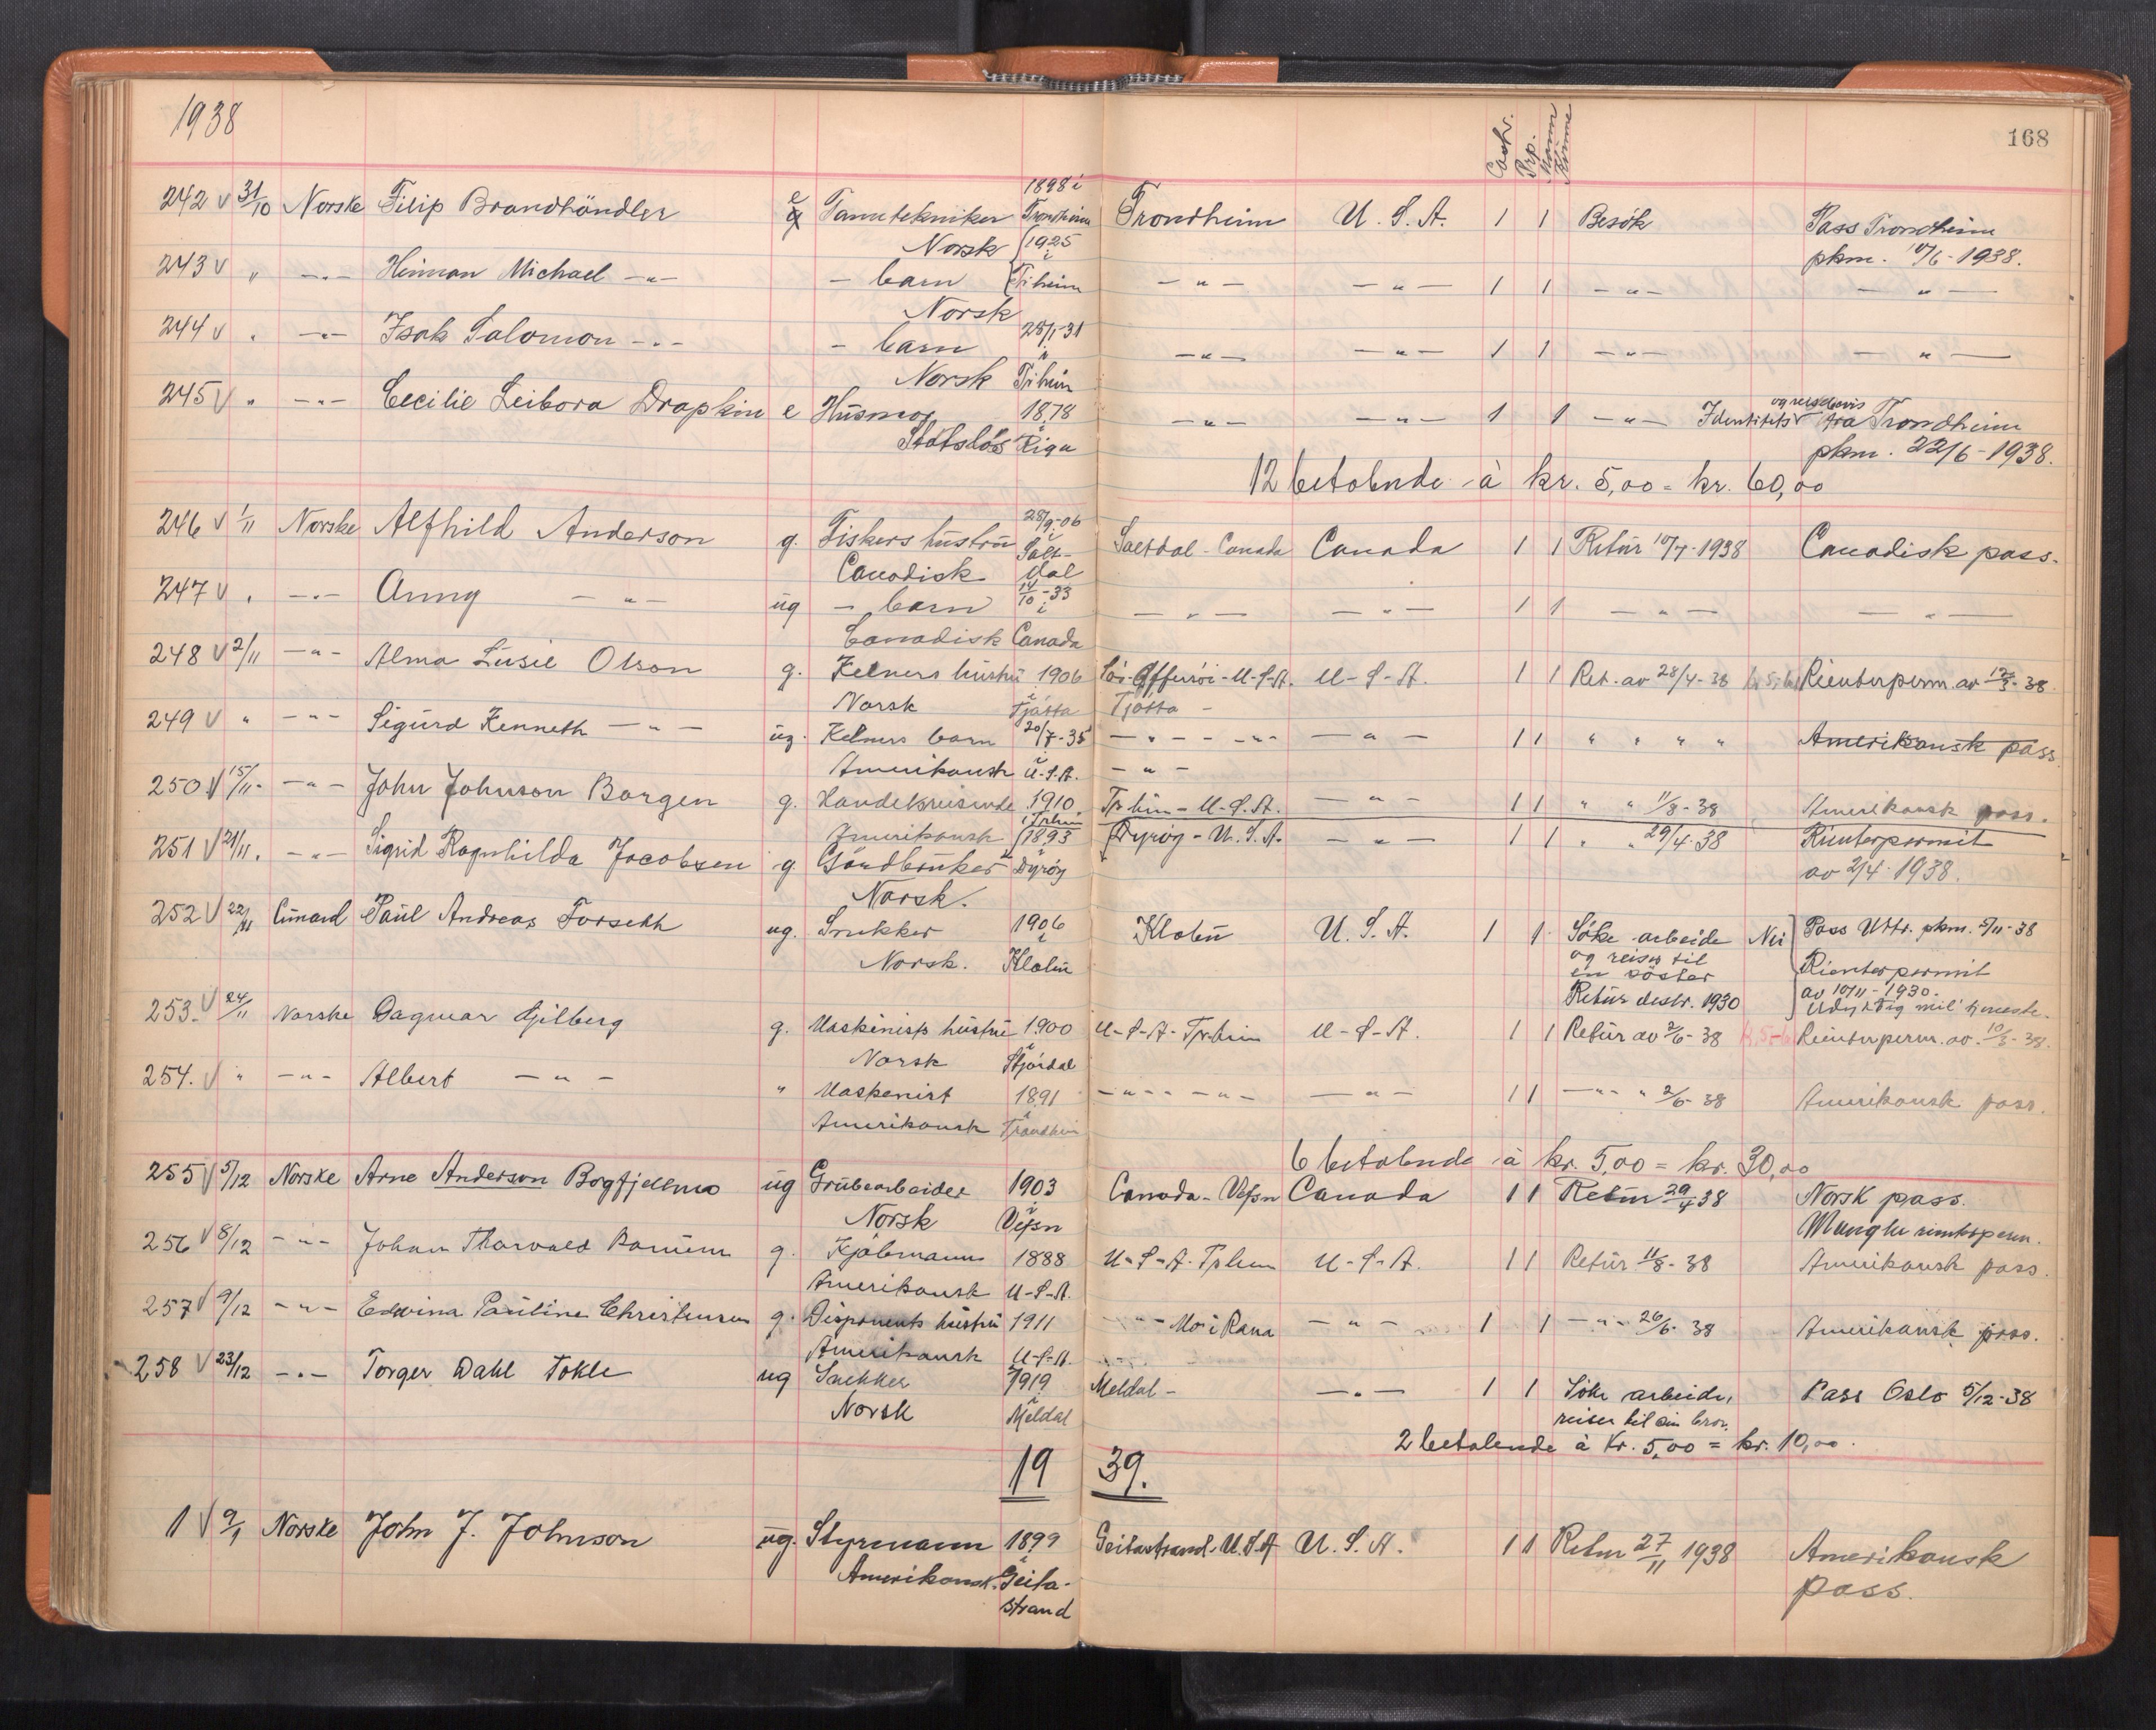 1938
Cash. Prp. Mann Kvinne
168
242 v 31/10 Norske Filip Brandhändler e g Tanntekniker 1898 i Trondheim Trondheim U.S.A. 1 1 Besøk Pass Trondheim
Norsk pkm. 10/6-1938.
243 v " -"- Heiman Michael -"- - barn 1925 i Tr.heim -"- -"- 1 1 -"- -"-
Norsk
244 v " -"- Isak Salomon -"- - barn 28/1-31 -"- -"- 1 1 -"- -"-
Norsk i Tr.heim
245 v " -"- Cecilie Leibora Drapkin e Husmor 1878 -"- -"- 1 1 -"- Identitets og reisebevis fra Trondheim
Statsløs i Riga pkm. 22/6-1938.
12 betalende à kr. 5,00 = kr. 60,00
246 v 1/11 Norske Alfhild Anderson g. Fiskers hustru 28/9-06 i Saltdal - Canada Canada 1 1 Retur 10/7-1938 Canadisk pass.
Canadisk Saltdal
247 v " -"- Anny -"- ug - barn 14/10-33 -"- -"- 1 1 -"- -"-
Canadisk i Canada
248 v 2/11 -"- Alma Lusie Olson g. Kelners hustru 1906 Sør-Offersøi-U-S-A. U-S-A. 1 1 Ret. av 28/4-38 Rienterperm. av 12/3-38.
Norsk i Tjøtta Tjøtta -
249 v " -"- Sigurd Kenneth -"- ug. Kelners barn 20/7-35 -"- -"- -"- 1 1 " " " " Amerikansk pass.
Amerikansk i U-S-A. -"-
250 v 15/11- -"- John Johnson Borgen g. Handelsreisende 1910 Tr.heim - U-S-A. -"- 1 1 " " 11/8-38 Amerikansk pass.
Amerikansk i Tr.heim
251 v 21/11. -"- Sigrid Ragnhilda Jacobsen g. Gårdbruker 1893 Dyrøy - U.S.A. -"- 1 1 " " 29/4-38 Rienterpermit
Norsk. i Dyrøy av 2/4-1938.
252 v 22/11 Cunard Paul Andreas Forseth ug. Snekker 1906 Klæbu U.S.A. 1 1 Søke arbeide Nei Pass Uttr. pkm. 5/11-38
Norsk. i Klæbu og reiser til Rienterpermit
en søster av 10/11-1930.
Retur destr. 1930 Udyktig mil. tjeneste.
253. v 24/11 Norske Dagmar Gilberg g. Maskinists hustru 1900 U-S-A-Tr.heim U-S-A. 1 1 Retur av 2/6-38 Rienterperm. av 10/3-38.
Norsk i Stjørdal
254. v " -"- Albert -"- " Maskinist 1891 -"- -"- -"- 1 1 -"- " 2/6-38 Amerikansk pass.
Amerikansk i Trondheim
6 betalende à kr. 5,00 = kr. 30,00
255 v 5/12 Norske Arne Anderson Bogfjellmo ug Grubearbeider 1903 Canada - Vefsn Canada 1 1 Retur 29/4 38 Norsk pass.
Norsk i Vefsn Mangler rientrperm.
256 v 8/12 -"- Johan Thorvald g. Kjøbmann 1888 U-S-A-Tr.heim U-S-A. 1 1 Retur 11/8-38 Amerikansk pass.
Amerikansk U-S-A.
257 v 9/12 -"- Edwina Pauline Christensen g. Disponents hustru 1911 -"- Mo i Rana -"- 1 1 -"- 26/6-38 Amerikansk pass.
Amerikansk U-S-A.
258 v 23/12 -"- Torger Dahl Tokle ug Snekker 1919 Meldal - -"- 1 1 Søke arbeide, Pass Oslo 5/12-38
Norsk i Meldal reiser til sin bror.
2 betalende à kr. 5,00 = kr. 10,00.
19 39.
1 v 9/1 Norske John J. Johnson ug. Styrmann 1899 Geitastrand - U.S.A U.S.A. 1 1 Retur 27/11 1938 Amerikansk
Amerikansk. i Geita- pass.
strand